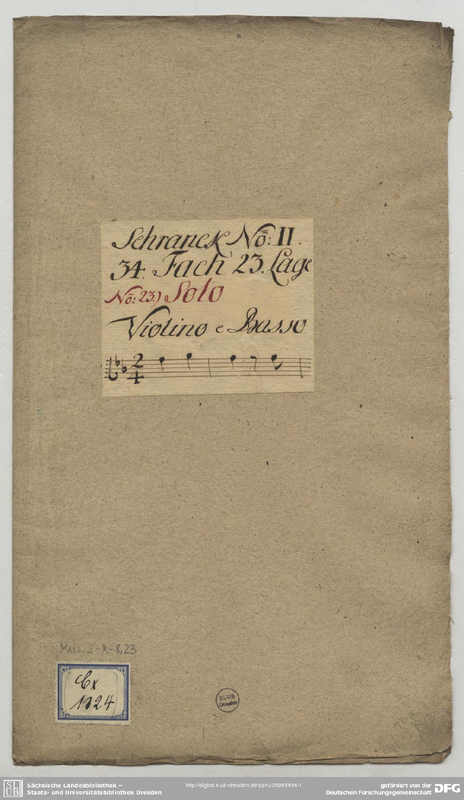 Schranck No: II.
34. Fach 23. Lage
No: 23) Solo
Violino e Basso
2
4
Mus. 2-R-8,23
Cx
1124
SLUB
Dresden
Sächsische Landesbibliothek –
Staats- und Universitätsbibliothek Dresden
gefördert von der
Deutschen Forschungsgemeinschaft
DFG